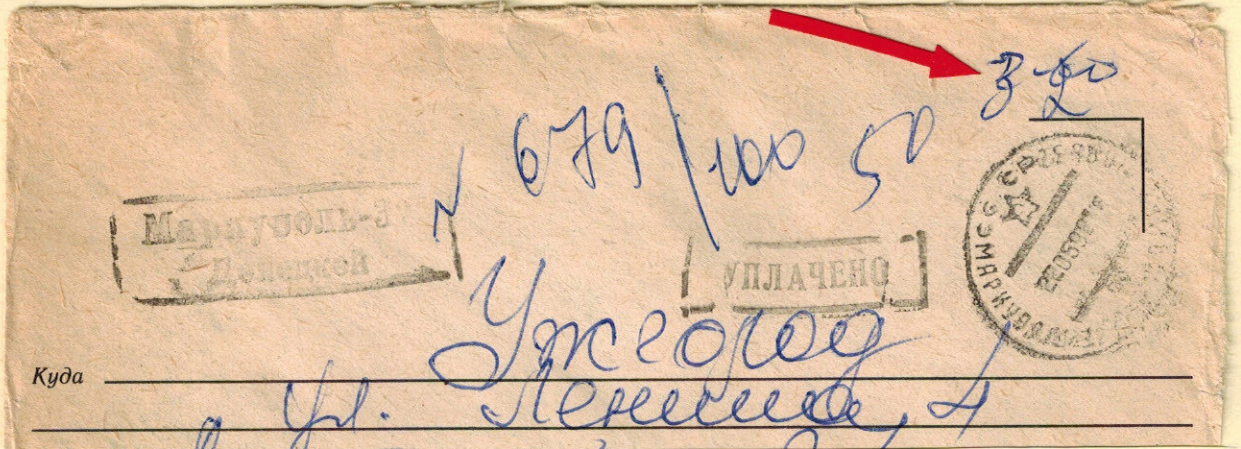 3-20
№ 679/100 50
Мариуполь-3
Донецкой
УПЛАЧЕНО
Ужгород
Куда
ул. Ленина, 4